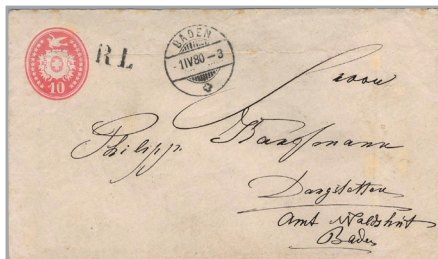 10
R.L.
BADEN
1 IV 80 - 3
Herrn
Philipp
Dangstetten
Amt Waldshut
Baden